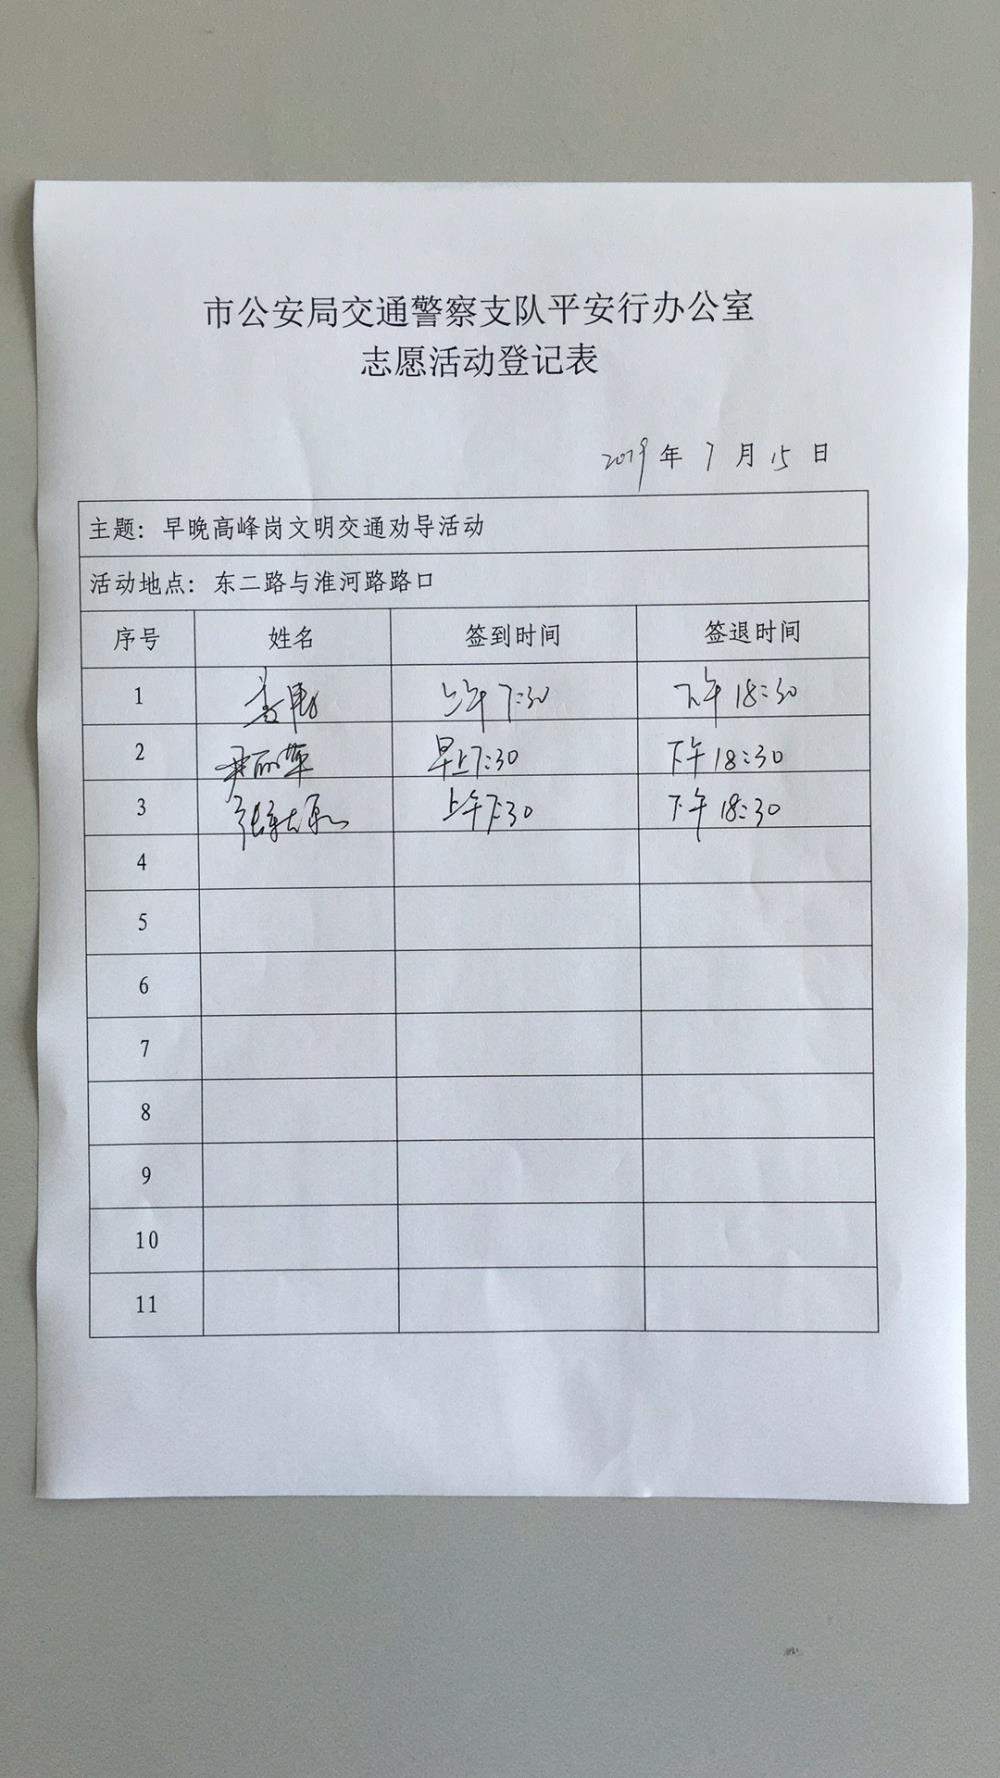 市公安局交通警察支队平安行办公室
志愿活动登记表
2019年7月15日
主题：早晚高峰岗文明交通劝导活动
活动地点：东二路与淮河路路口
序号 姓名 签到时间 签退时间
1 上午7:30 下午18:30
2 尹丽萍 早上7:30 下午18:30
3 上午7:30 下午18:30
4
5
6
7
8
9
10
11